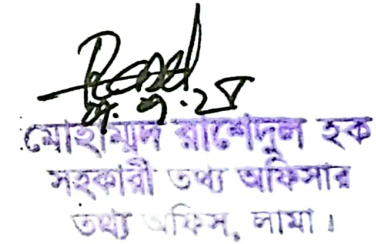 মোহাম্মদ রাশেদুল হক
সহকারী তথ্য অফিসার
তথ্য অফিস, লামা।